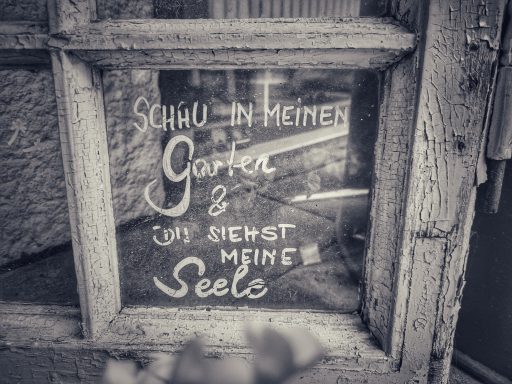 SCHAU IN MEINEN
Garten
&
DU SIEHST
MEINE
Seele